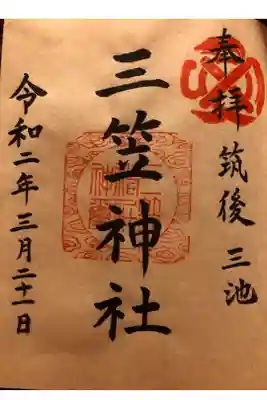 奉拝 筑後 三池
三笠神社
令和二年三月二十一日